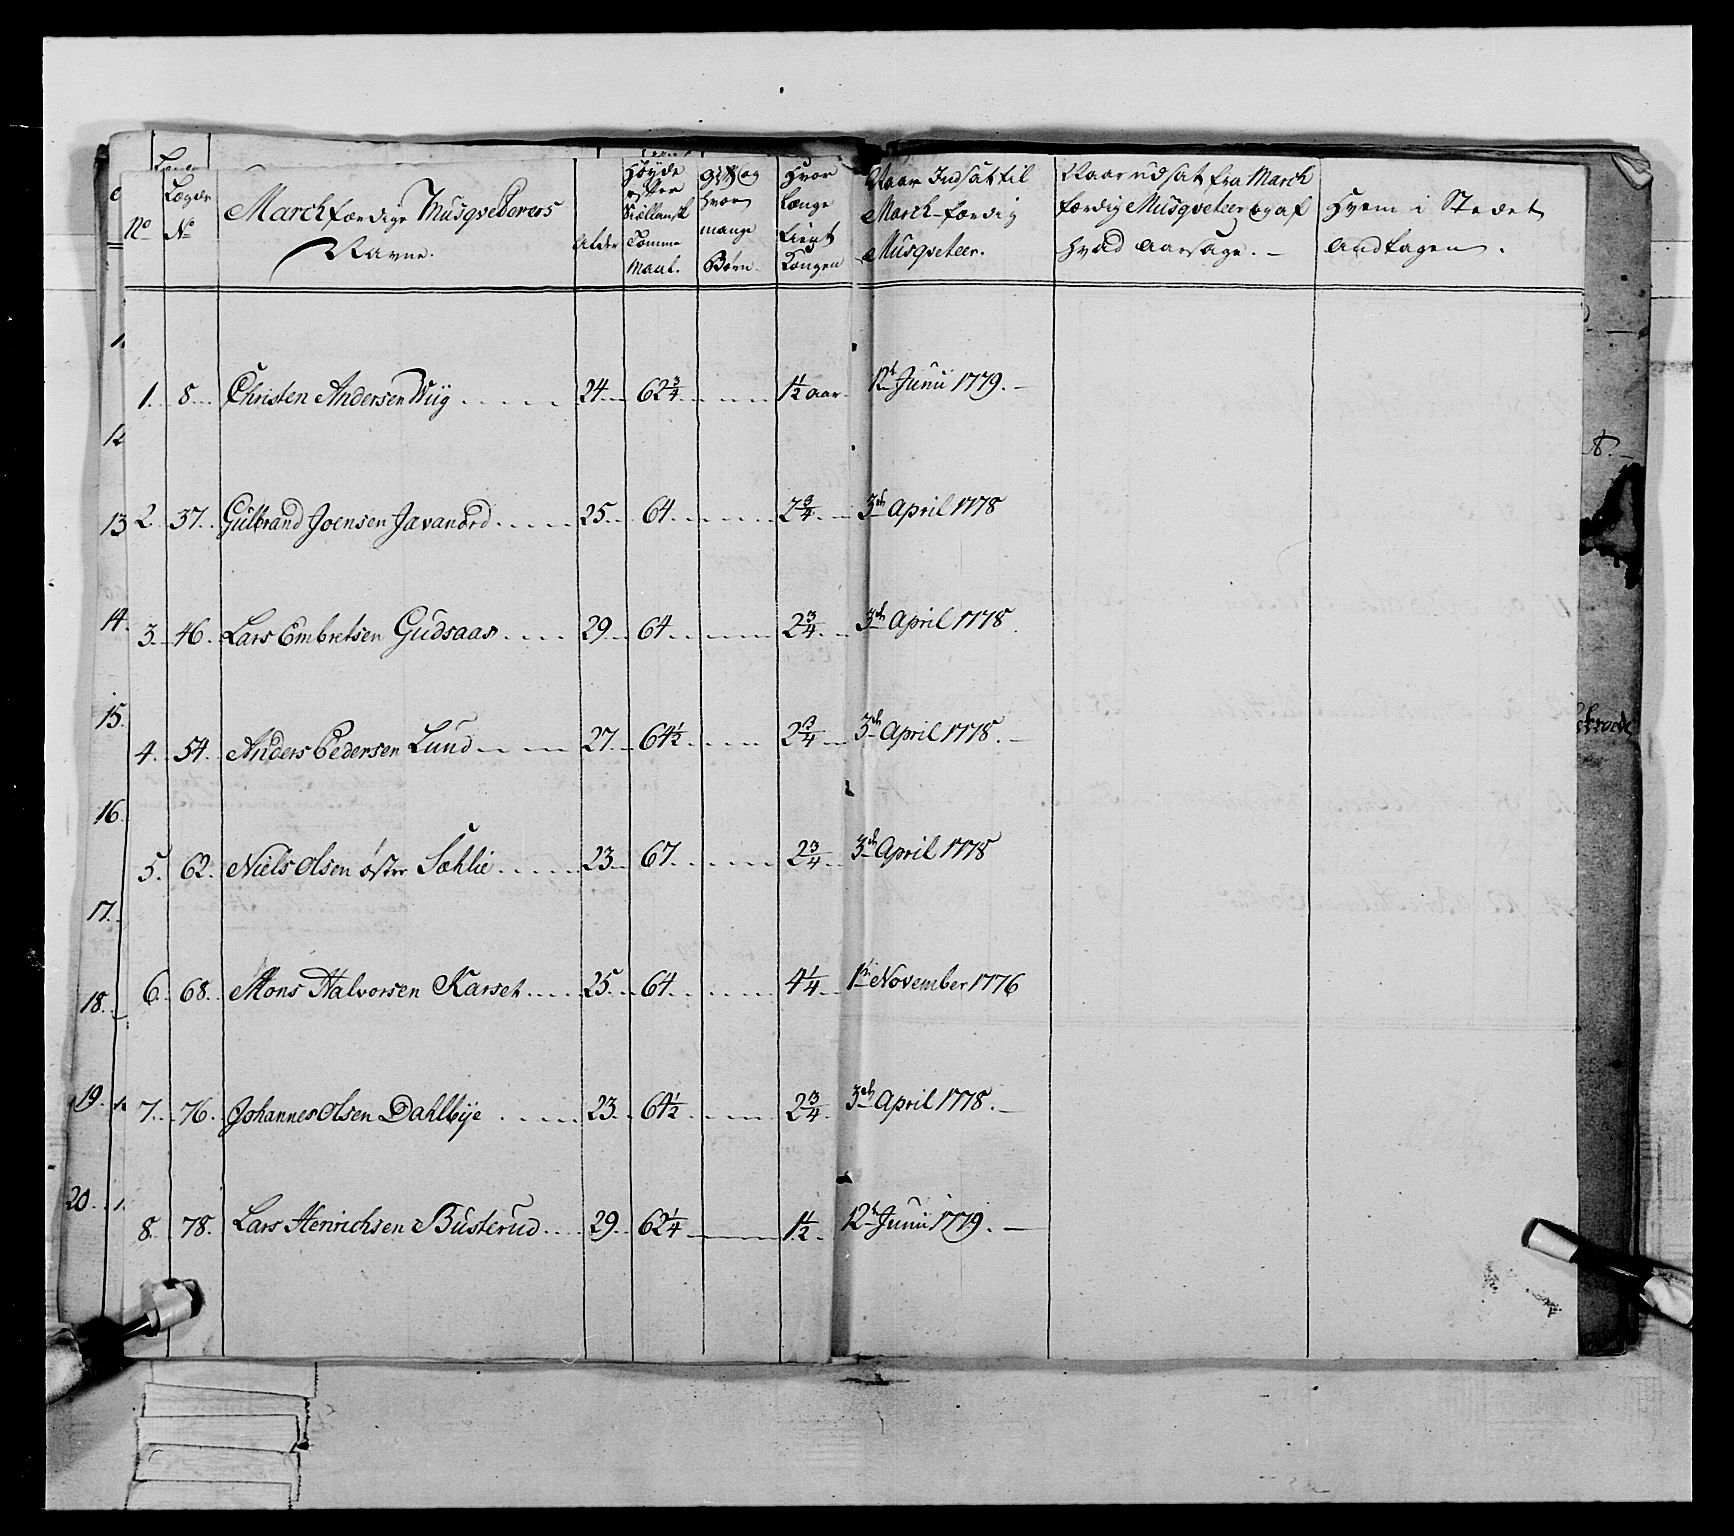 No
Lægds No
Marchfærdige Musqveterers
Navne.
Alder
Høyde
efter
Siællansk
Tomme
Maal.
gift og
hvor
mange
Børn.
Hvor
længe
tient
Kongen
Naar Indsat til
March-færdig
Musqveteer.
Naar udsat fra March
færdig Musqveteer og af
hvad aarsage. -
Hvem i Stedet
andtagen.
1. 8. Christen Andersen Wiig 24. 62 3/4 1 1/2 aar. 12te Junii 1779.
2. 37. Gulbrand Joensen Javanord 25. 64. 2 3/4 3de April 1778
3. 46. Lars Embretsen Gudsaas 29. 64 2 3/4 3de April 1778.
4. 54. Anders Pedersen Lund 27. 64 1/2 2 3/4 3de April 1778.
5. 62. Niels Olsen øster Sæhlie 23. 67. 2 3/4 3de April 1778
6. 68. Mons Halvorsen Karset 25. 64. 4 1/4 1te November 1776
7. 76. Johannes Olsen Dahlbye 23. 64 1/2 2 3/4 3de April 1778.
8. 78. Lars Henrichsen Busterud 29. 62 1/4 1 1/2 12te Junii 1779.
1.
12
13
14.
15.
16.
17.
18.
19.
20.